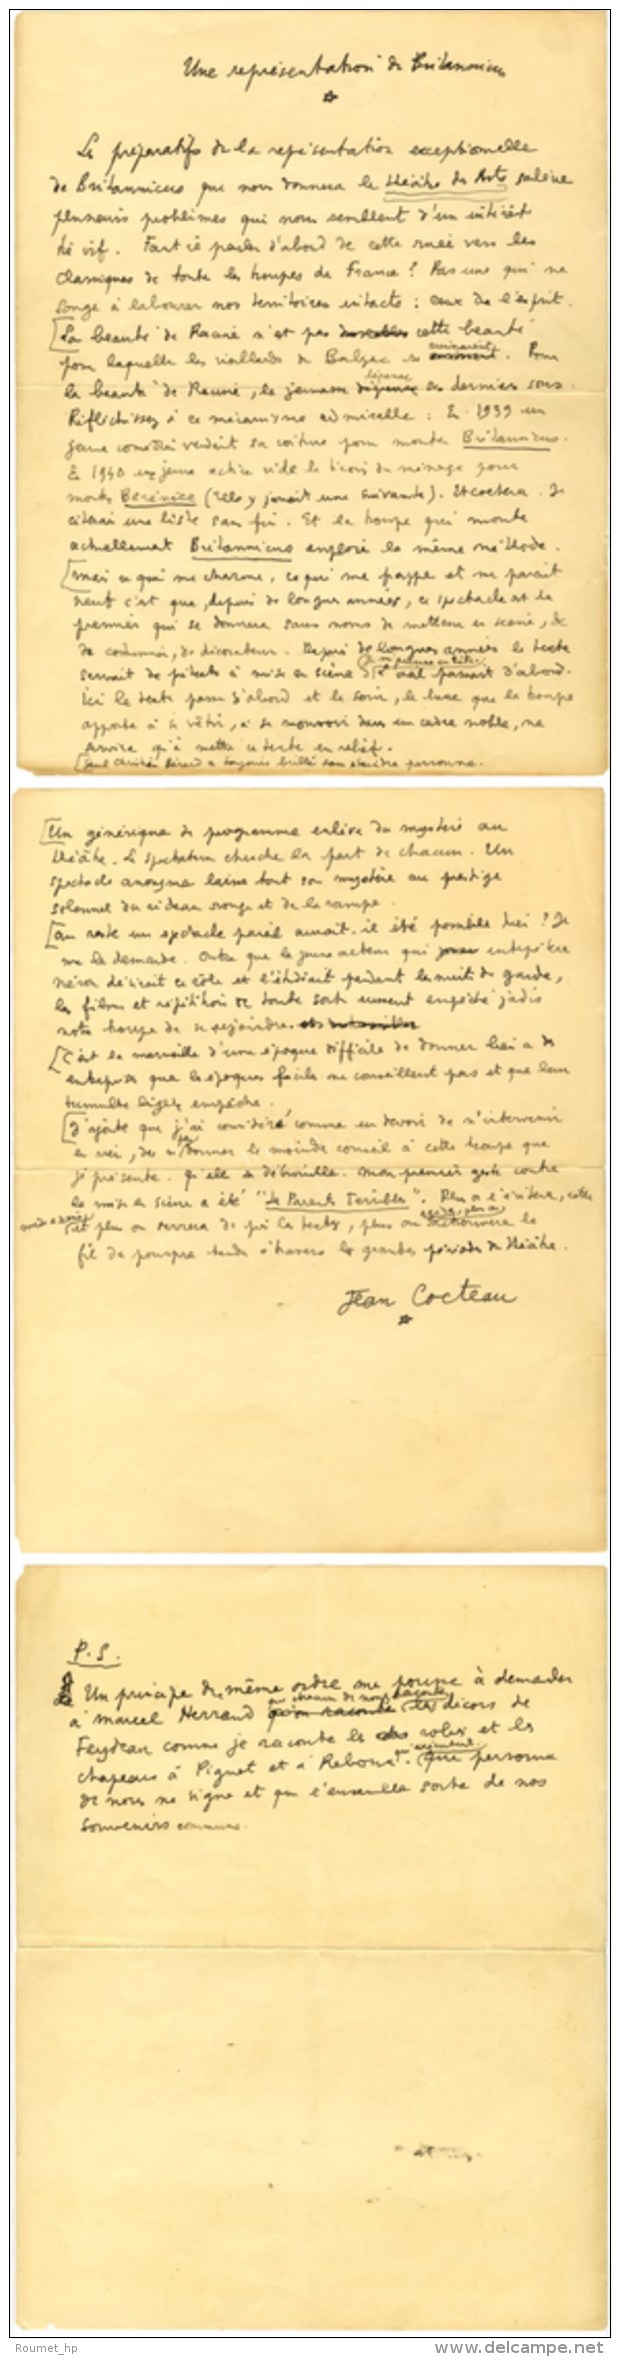 Une représentation de Britannicus
Les préparatifs de la représentation exceptionnelle
de Britannicus que nous donnera le théâtre des Arts soulève
plusieurs problèmes qui nous semblent d'un intérêt
très vif. Faut-il parler d'abord de cette ruée vers les
classiques de toutes les troupes de France ? Pas une qui ne
songe à labourer nos territoires intacts : ceux de l'esprit.
[La beauté de Racine n'est pas cette beauté
pour laquelle les vieillards de Balzac se ruinaient. Pour
la beauté de Racine, la jeunesse dépense ses derniers sous.
Réfléchissez à ce mécanisme admirable : En 1939 un
jeune comédien vendait sa voiture pour monter Britannicus.
En 1940 une jeune actrice vide le tiroir du ménage pour
monter Bérénice (Elle y jouait une suivante). Et cætera. Je
citerais une liste sans fin. Et la troupe qui monte
actuellement Britannicus emploie la même méthode.
[Mais ce qui me charme, ce qui me frappe et me paraît
neuf c'est que, depuis de longues années, ce spectacle est le
premier qui se donnera sans noms de metteur en scène,
de costumier, de décorateur. Depuis de longues années le texte
servait de prétexte à mise en scène passait d'abord.
Ici le texte passe d'abord et le soin, le luxe que la troupe
apporte à se vêtir, à se mouvoir dans un cadre noble, ne
servira qu'à mettre ce texte en relief.
[Seul Christian Bérard a toujours brillé sans éteindre personne.
[Un générique de programme enlève du mystère au
théâtre. Le spectateur cherche la part de chacun. Un
spectacle anonyme laisse tout son mystère au prestige
solennel du rideau rouge et de la rampe.
[Au reste un spectacle pareil aurait-il été possible hier ? Je
me le demande. Outre que le jeune acteur qui interprète
Néron décidait ce rôle et l'étudiait pendant les nuits de garde,
les films et répétitions de toute sorte eussent empêché jadis
notre troupe de se rejoindre.
[C'est la merveille d'une époque difficile de donner lieu à des
entreprises que les époques faciles ne conseillent pas et que leur
tumulte léger empêche.
[J'ajoute que j'ai considéré comme un devoir de n'intervenir
en rien, de ne donner le moindre conseil à cette troupe que
je présente. Qu'elle se débrouille. Mon premier geste contre
la mise en scène a été "Les Parents Terribles". Plus on l'évitera, cette
mise en scène, et plus on serrera de près les textes, plus on retrouvera le
fil de pourpre tendu à travers les grandes périodes du théâtre.
Jean Cocteau
P.S.
Un principe du même ordre me pousse à demander
à Marcel Herrand les décors de
Feydeau comme je raconte les robes et les
chapeaux à Piguet et à Reboux. Que personne
de nous ne signe et que l'ensemble sorte de nos
souvenirs communs.
Roumet_hp
www.delcampe.net